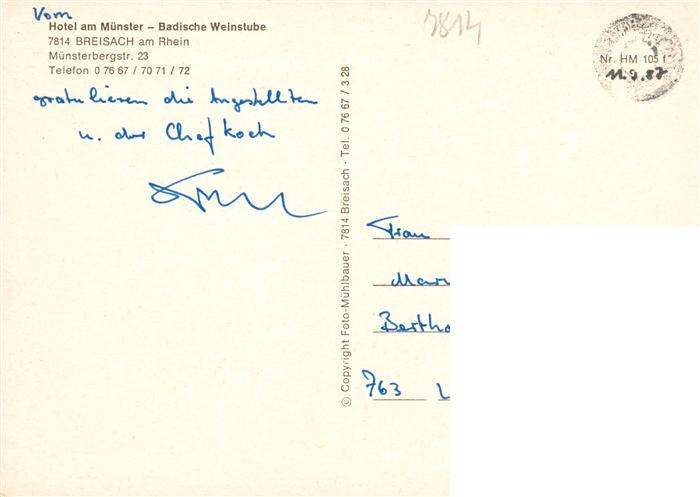 Vom
Hotel am Münster – Badische Weinstube
7814 BREISACH am Rhein
Münsterbergstr. 23
Telefon 0 76 67 / 70 71 / 72
gratulieren die Angestellten
u. der Chefkoch
7814
Nr. HM 105 f
11.9.87
© Copyright Foto-Mühlbauer · 7814 Breisach · Tel. 0 76 67 / 3 28
Frau
Mar
Bertho
763 L